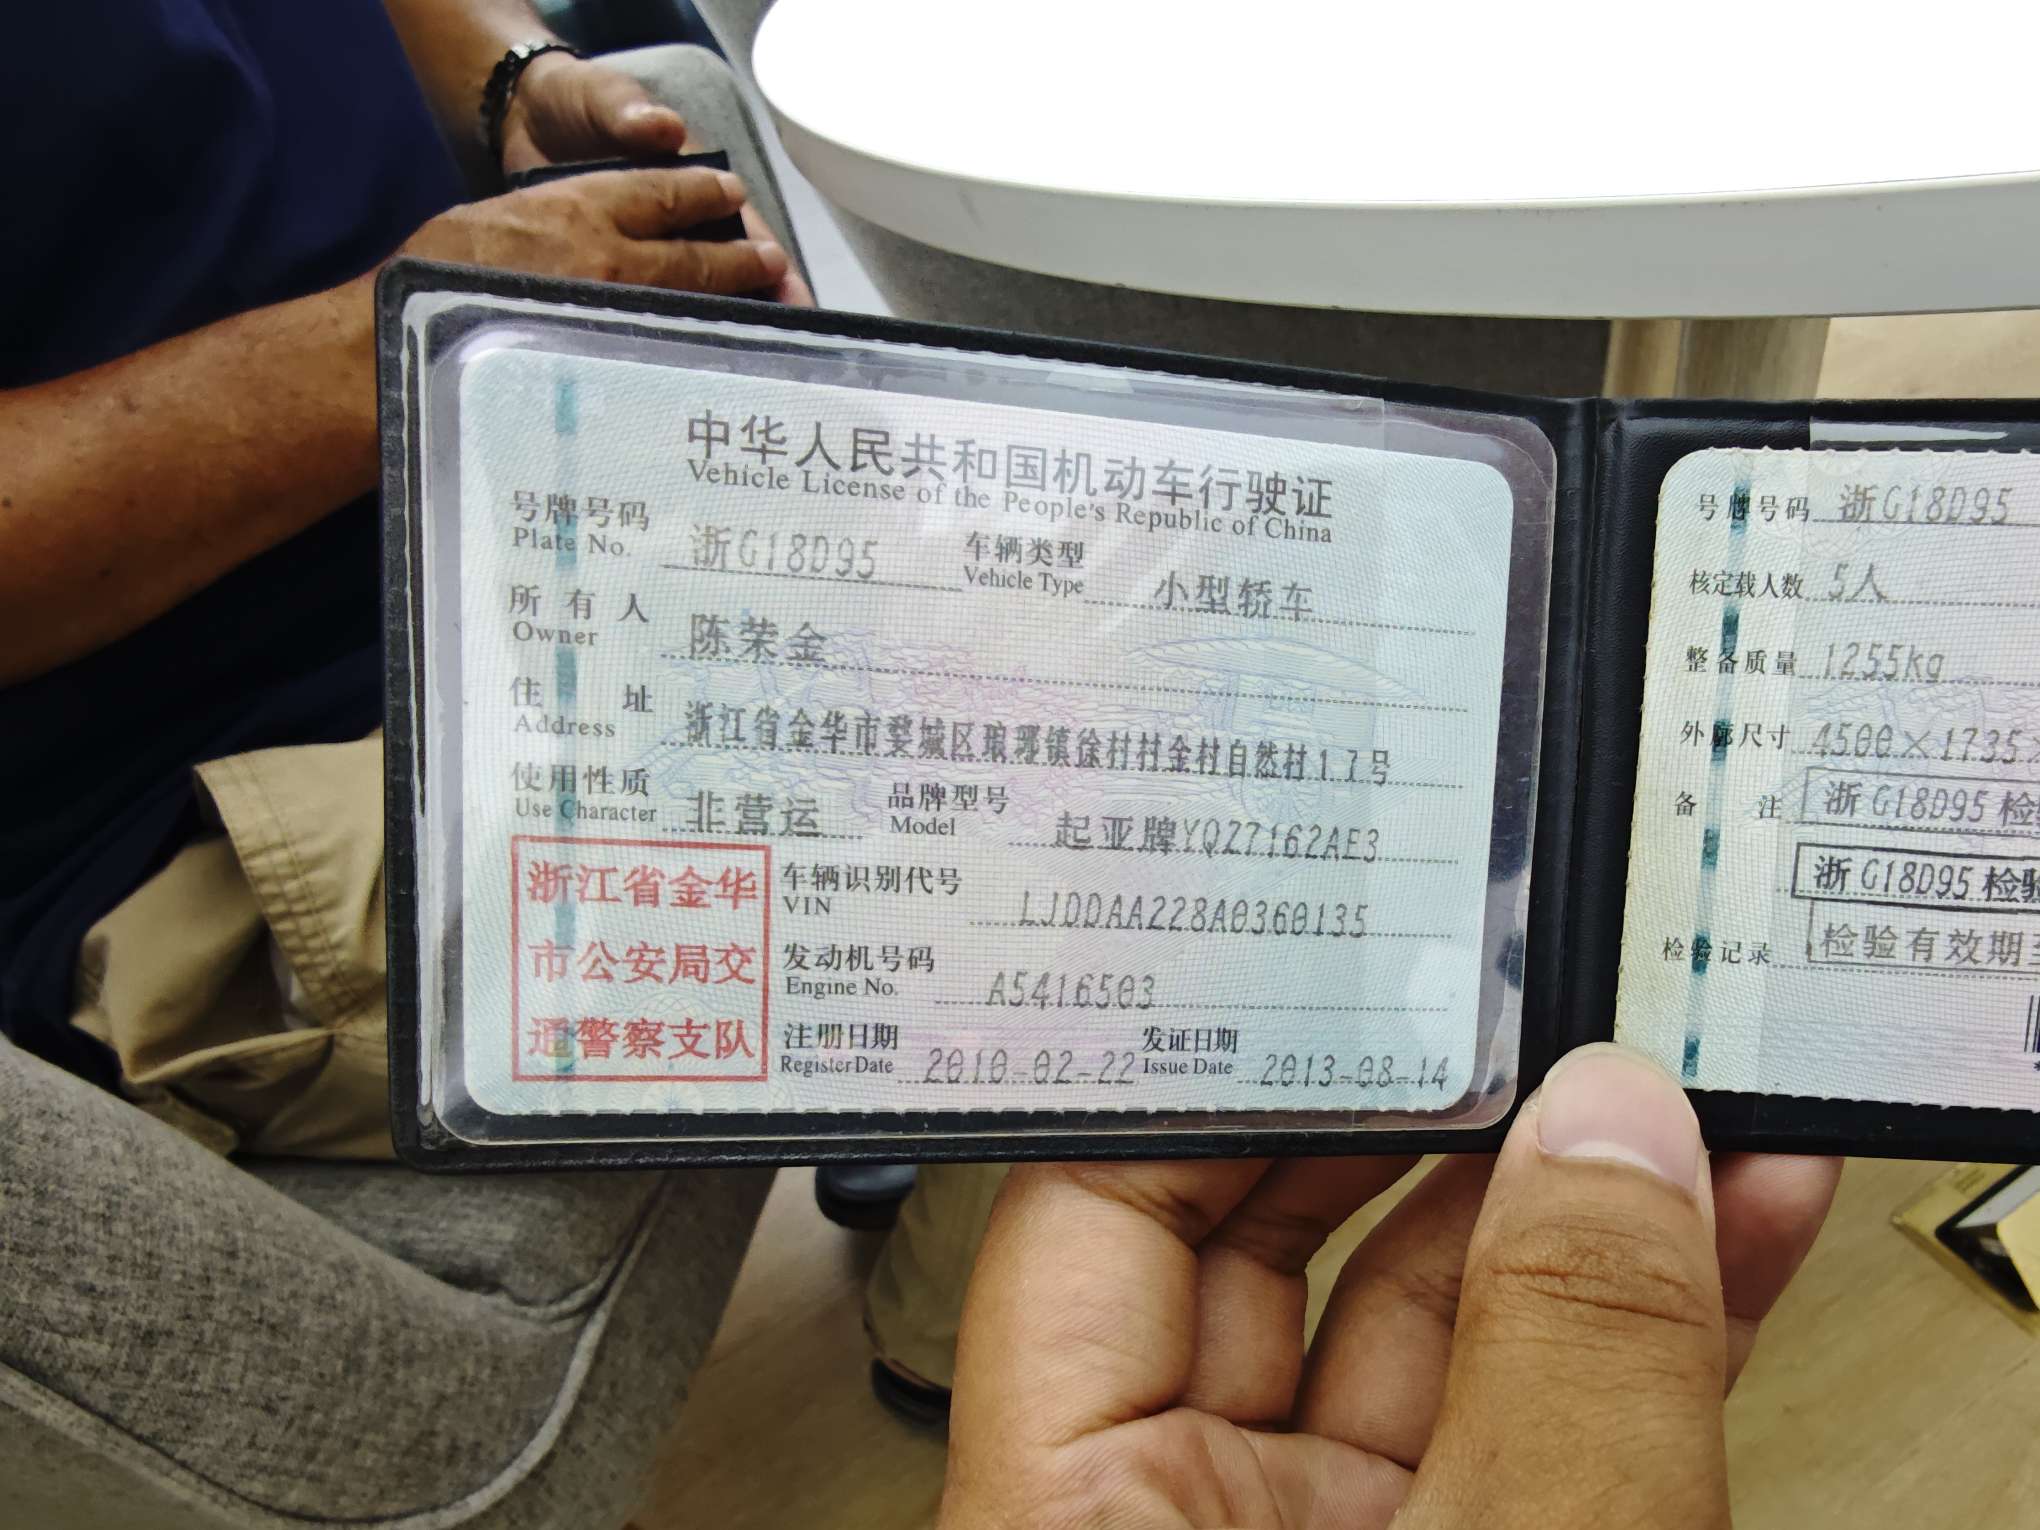 中华人民共和国机动车行驶证
Vehicle License of the People's Republic of China
号牌号码 浙G18D95 车辆类型 小型轿车
Plate No. Vehicle Type
所有人 陈荣金
Owner
住址 浙江省金华市婺城区琅琊镇徐村村金村自然村17号
Address
使用性质 非营运 品牌型号 起亚牌YQZ7162AE3
Use Character Model
浙江省金华
市公安局交
通警察支队
车辆识别代号 LJDDAA228A0360135
VIN
发动机号码 A5416503
Engine No.
注册日期 2010-02-22 发证日期 2013-08-14
Register Date Issue Date
号牌号码 浙G18D95
核定载人数 5人
整备质量 1255kg
外廓尺寸 4500×1735
备注 浙G18D95 检
浙G18D95 检验
检验记录 检验有效期